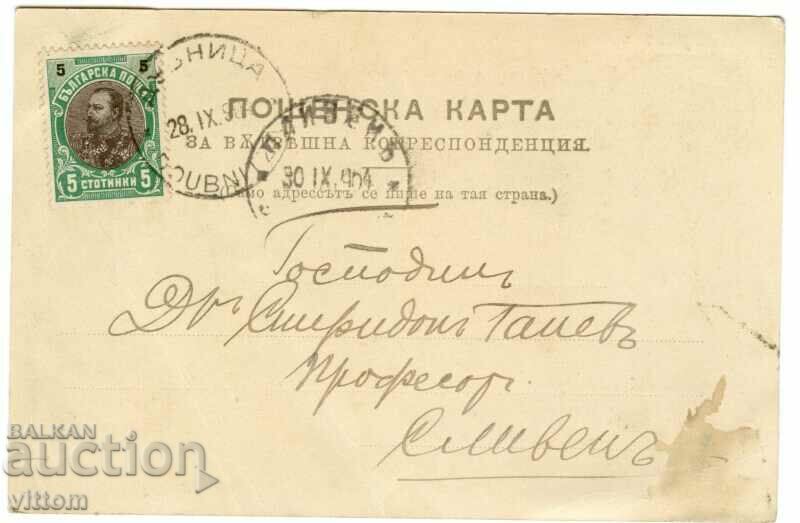 5 5
БЪЛГАРСКА ПОЩА
5 СТОТИНКИ 5
БНИЦА
28. IX.
DOUBNI
ПОЩЕНСКА КАРТА
ЗА ВѪТРѢШНА КОРРЕСПОНДЕНЦИЯ.
30 IX. 904
адрессътъ се пише на тая страна.)
Господинъ
Дръ Спиридонъ Ганевъ
Професоръ
Сливенъ
BALKAN
auction
vittom